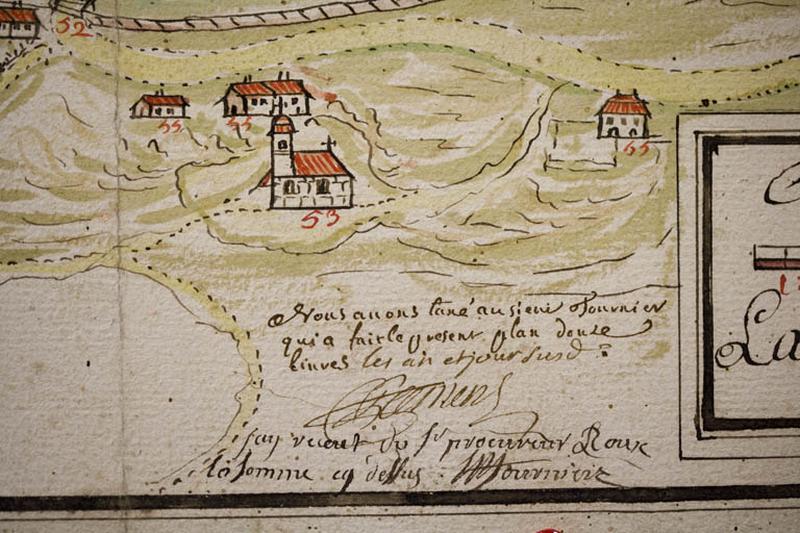 52
55
55
55
53
Nous auons taxé au sieur Fournier
qui a fait le present plan douze
liures les an et jour susd.
jay receut du Sr procureur Roux
la somme cy dessus Fournier
La